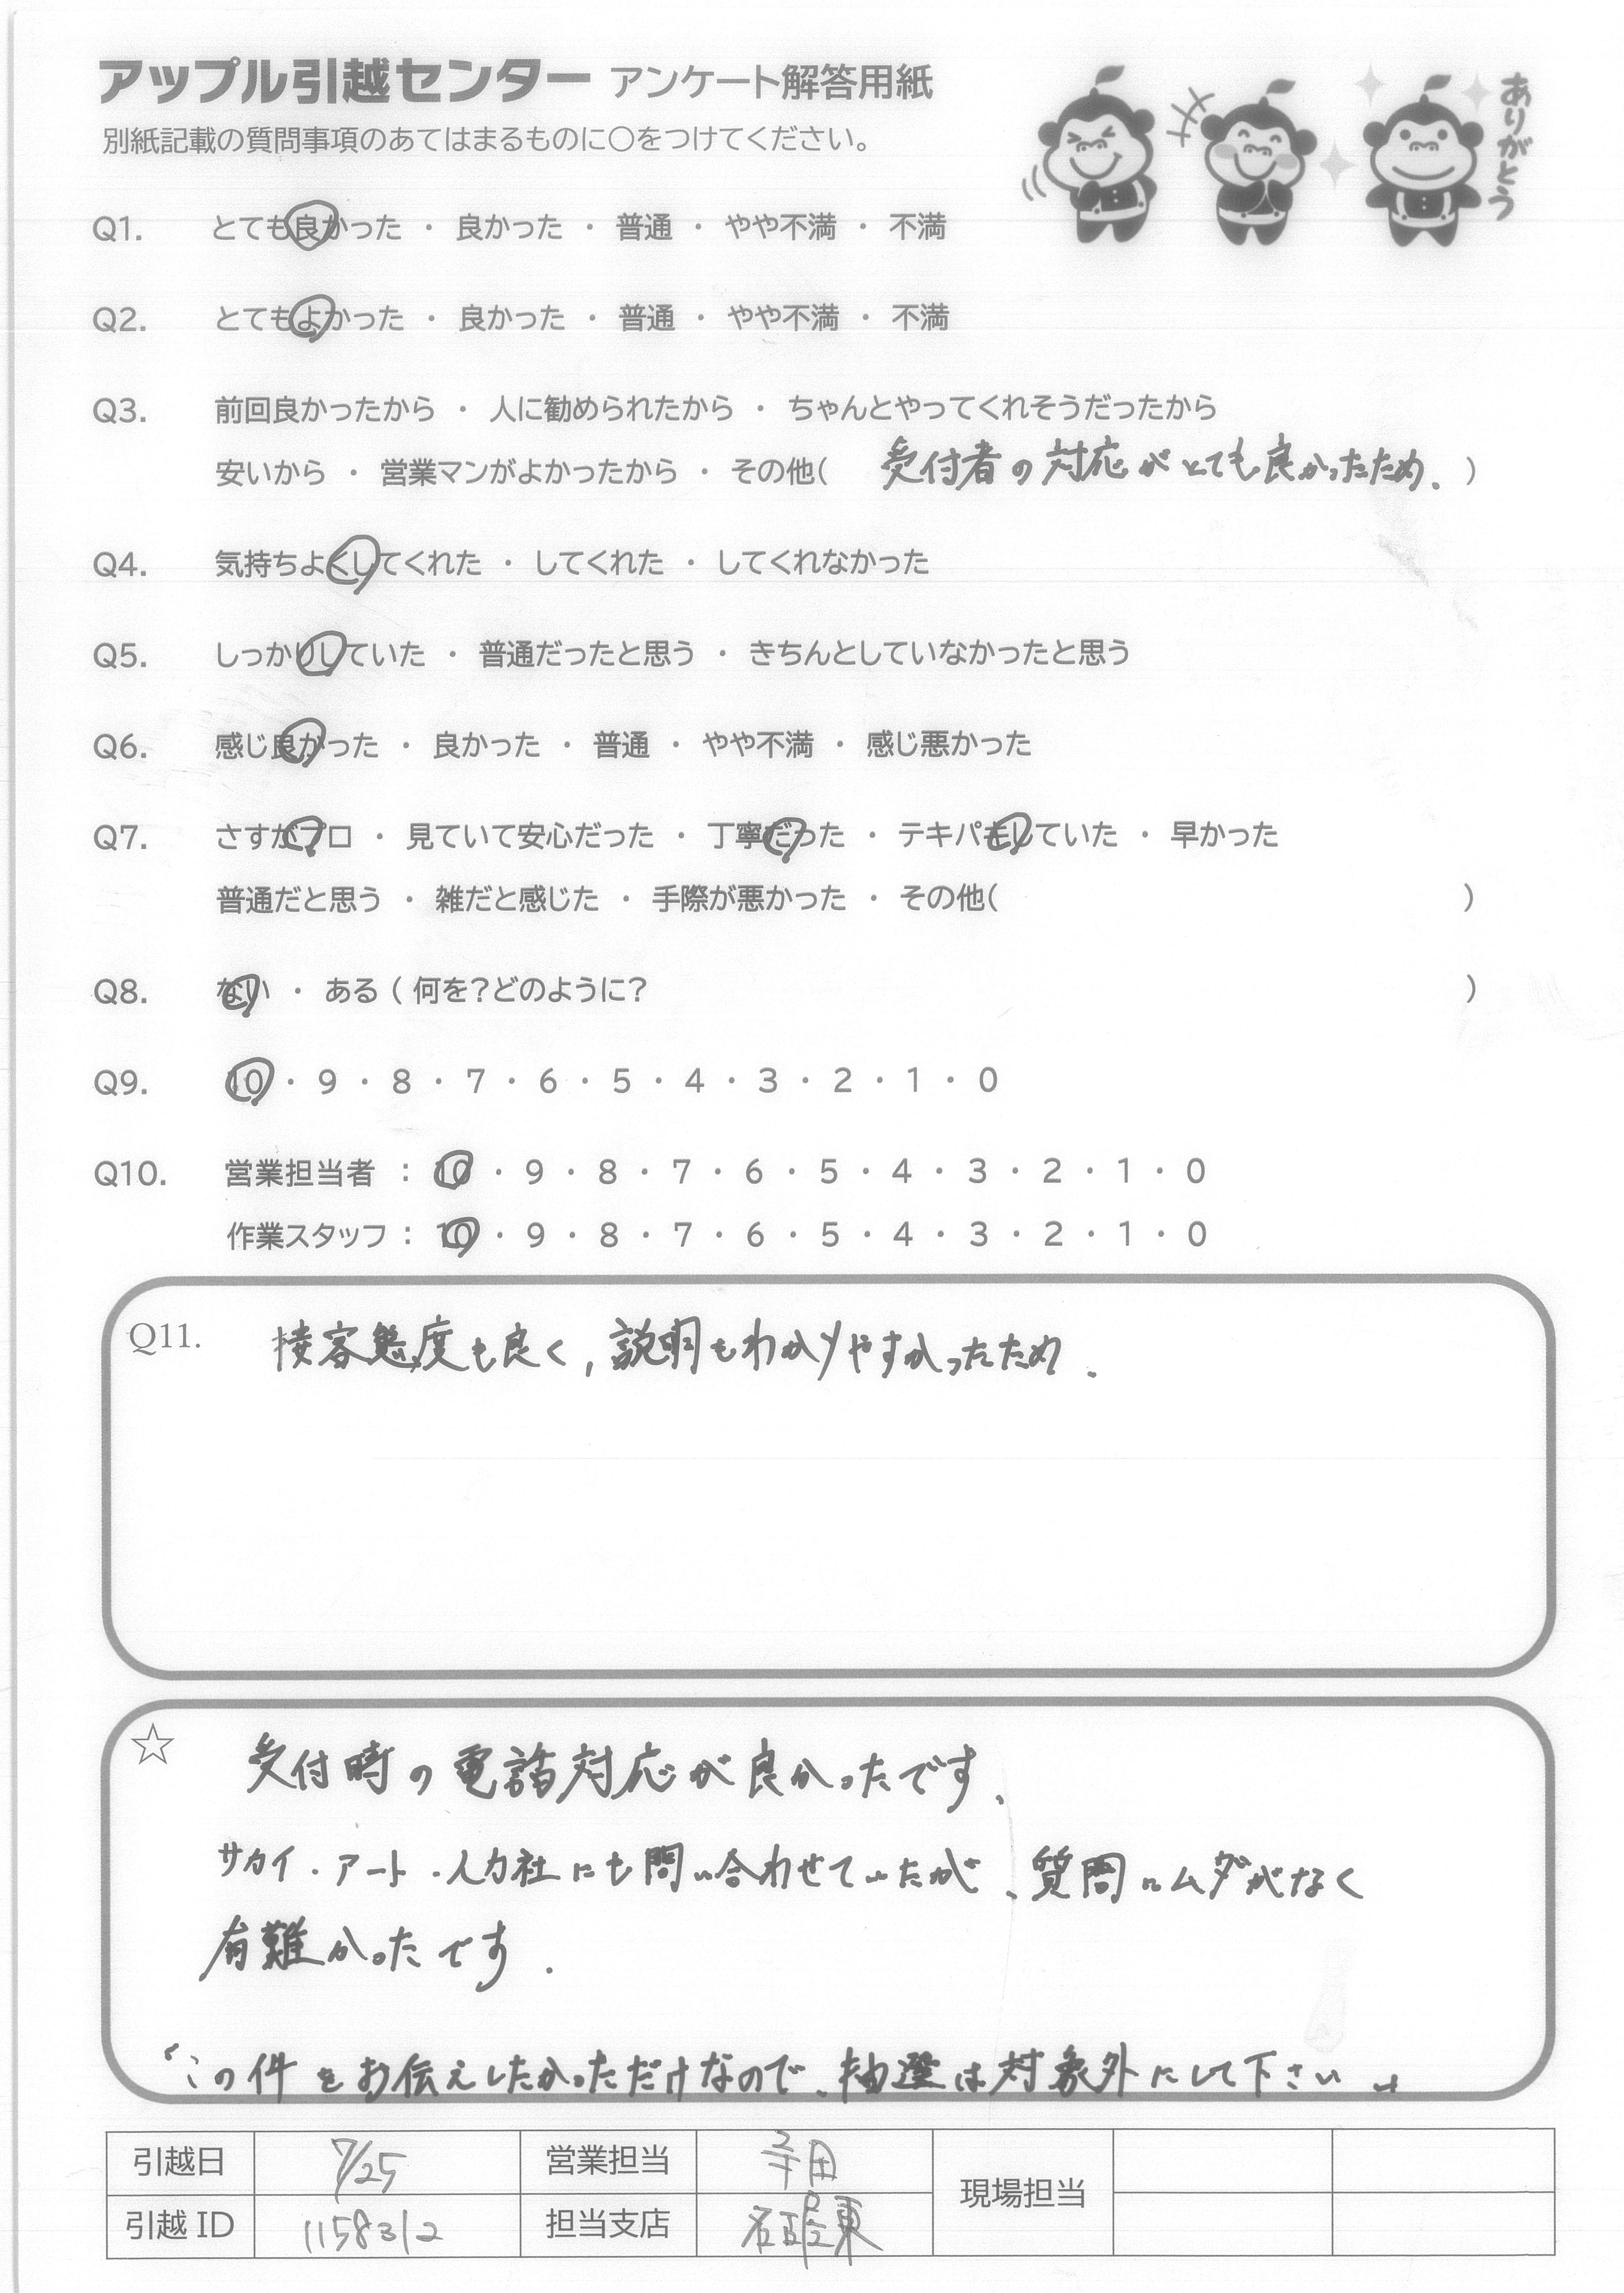 アップル引越センター アンケート解答用紙
ありがとう
別紙記載の質問事項のあてはまるものに〇をつけてください。
Q1. とても良かった ・ 良かった ・ 普通 ・ やや不満 ・ 不満
Q2. とてもよかった ・ 良かった ・ 普通 ・ やや不満 ・ 不満
Q3. 前回良かったから ・ 人に勧められたから ・ ちゃんとやってくれそうだったから
安いから ・ 営業マンがよかったから ・ その他( 受付者の対応がとても良かったため. )
Q4. 気持ちよくしてくれた ・ してくれた ・ してくれなかった
Q5. しっかりしていた ・ 普通だったと思う ・ きちんとしていなかったと思う
Q6. 感じ良かった ・ 良かった ・ 普通 ・ やや不満 ・ 感じ悪かった
Q7. さすがプロ ・ 見ていて安心だった ・ 丁寧だった ・ テキパキしていた ・ 早かった
普通だと思う ・ 雑だと感じた ・ 手際が悪かった ・ その他( )
Q8. ない ・ ある ( 何を?どのように? )
Q9. 10 ・ 9 ・ 8 ・ 7 ・ 6 ・ 5 ・ 4 ・ 3 ・ 2 ・ 1 ・ 0
Q10. 営業担当者 : 10 ・ 9 ・ 8 ・ 7 ・ 6 ・ 5 ・ 4 ・ 3 ・ 2 ・ 1 ・ 0
作業スタッフ : 10 ・ 9 ・ 8 ・ 7 ・ 6 ・ 5 ・ 4 ・ 3 ・ 2 ・ 1 ・ 0
Q11. 接客態度も良く, 説明もわかりやすかったため.
☆ 受付時の電話対応が良かったです、
サカイ・アート・人力社にも問い合わせていたが、質問にムダがなく
有難かったです.
「この件をお伝えしたかっただけなので、抽選は対象外にして下さい」
引越日 7/25 営業担当 寺田 現場担当
引越 ID 1158312 担当支店 名古屋東